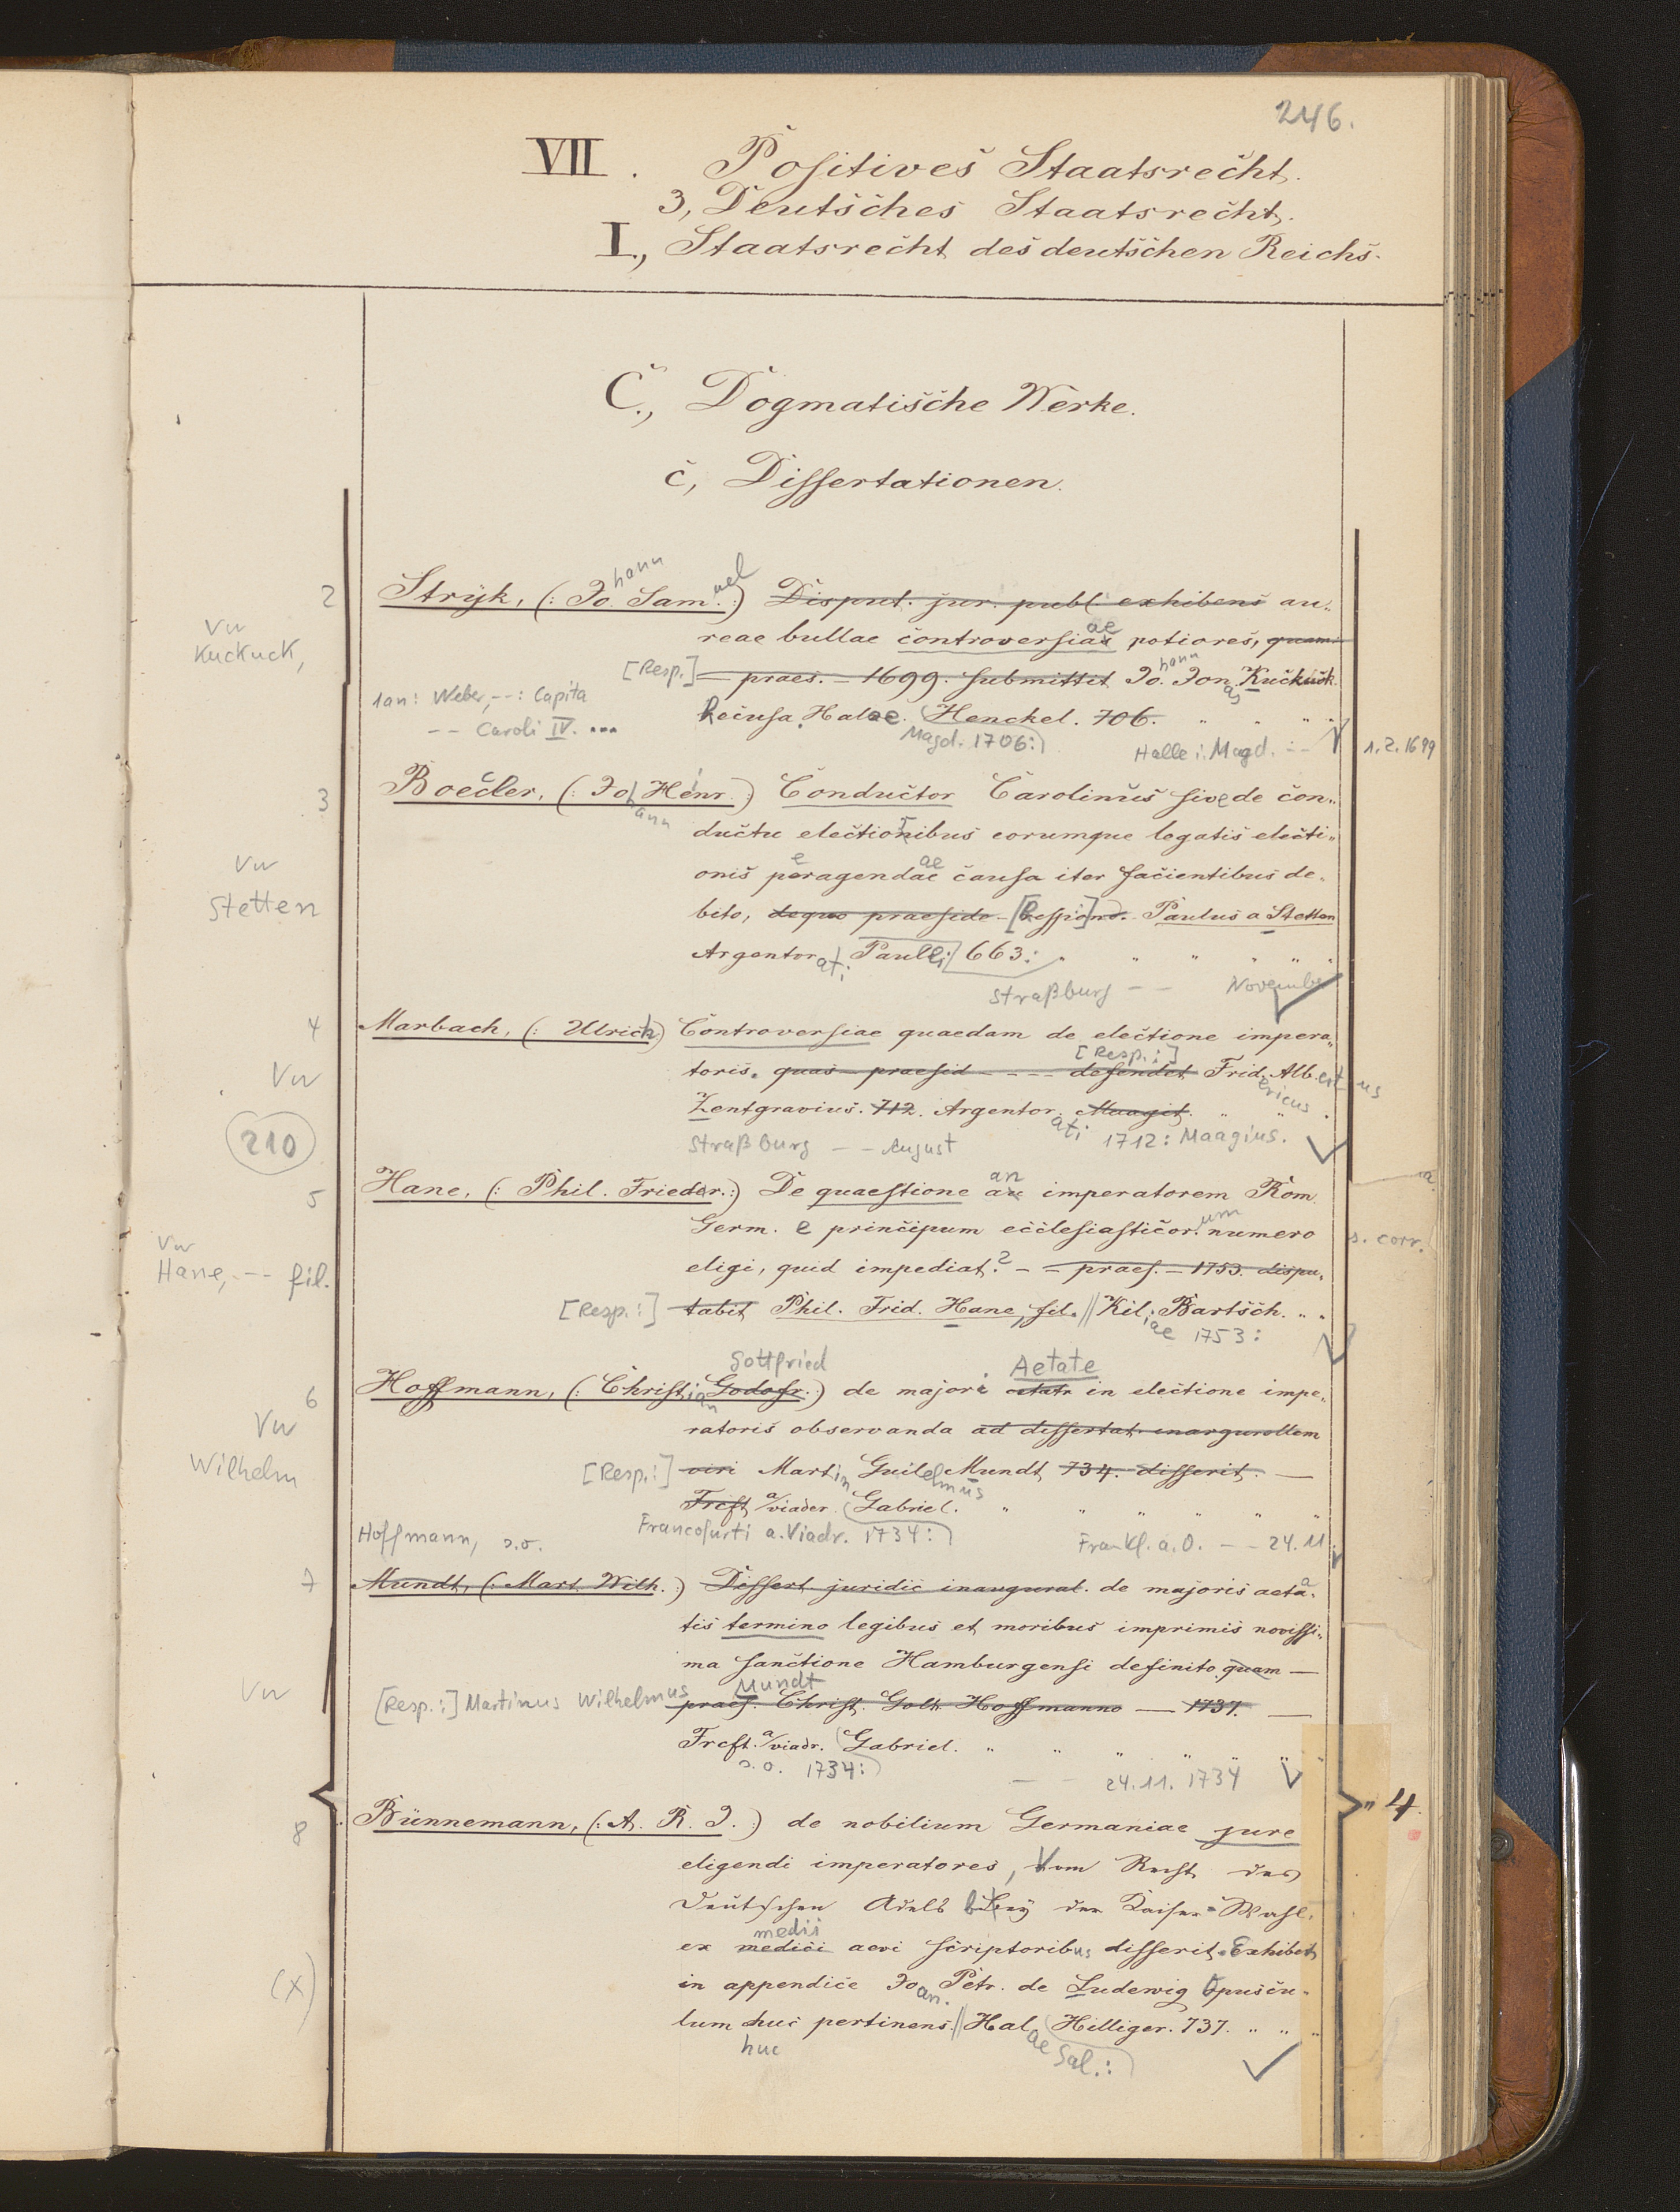 246.
VII. Positives Staatsrecht.
3, Deutsches Staatsrecht.
I., Staatsrecht des deutschen Reichs.
C., Dogmatische Werke.
c, Dissertationen.
hann uel
2 Stryk, (: Jo. Sam. :) Disput. jur. publ. exhibens au„
vw
Kuckuck,
reae bullae controversiae potiores, quam
[Resp.] praes. – 1699. submittit Jo.hann Jon.as Kuckuck.
1an: Weber, --: Capita
-- Caroli IV. ...
Recusa. Halae. (Henckel. 706. " " " "
Magd. 1706:) Halle: Magd. -- 1.2.1699
3 Boecler, (: Johann Henr. :) Conductor Carolinus sive de con„
ductu electionibus eorumque legatis electi„
vw
Stetten
onis peragendae causa iter facientibus de„
bito, de quo praeside [Respiond.] Paulus a Stetten
Argentorati: Paulli: 663: " " " " "
Straßburg -- November
4 Marbach, (: Ulrich) Controversiae quaedam de electione impera„
[Resp.:]
vw
toris. quas praesid – – – – defendet Fridericus Albertus
Zentgravius. 712. Argentorati Maagit. " " "
210
Straßburg -- August 1712: Maagius.
5 Hane, (: Phil. Frieder. :) De quaestione an imperatorem Rom.
Germ. e principum ecclesiasticor.um numero s. corr.
vw
Hane, -- fil.
eligi, quid impediat? – – praes. – 1753. dispu„
[Resp.:] tabit Phil. Frid. Hane, fil. // Kil. Bartsch. " "
iae 1753:
Gottfried Aetate
6 Hoffmann, (: Christian Godofr. :) de majori aetate in electione impe„
vw
Wilhelm
ratoris observanda ad dissertat. inaugurallem
[Resp.:] viri Martin Guilelmus Mundt 734. disserit. —
Frcft. a/viader. (Gabriel. " " " " "
Hoffmann, s.o. Francofurti a. Viadr. 1734:) Frankf. a. O. -- 24.11.
7 Mundt, (: Mart. Wilh. :) Dissert juridic inaugural. de majoris aeta„
tis termino legibus et moribus imprimis novissi„
ma sanctione Hamburgensi definito. quam —
vw
[Resp.:] Martinus Wilhelmus Mundt praes. Christ. Goth. Hoffmanno — 1737. —
Frcft. a/viadr. (Gabriel. " " " " " "
s.o. 1734:) -- 24.11.1734
8 Bünnemann, (: A. R. J. :) de nobilium Germaniae jure " 4.
eligendi imperatores, Vom Recht des
deutschen Adels bey der Kaiser-Wahl.
medii
ex medici aevi scriptoribus disserit. Exhibet
(x)
in appendice Joan. Petr. de Ludewig Opuscu„
lum huc pertinens. // Halae (Hilliger. 737. " " "
huc Sal.:)